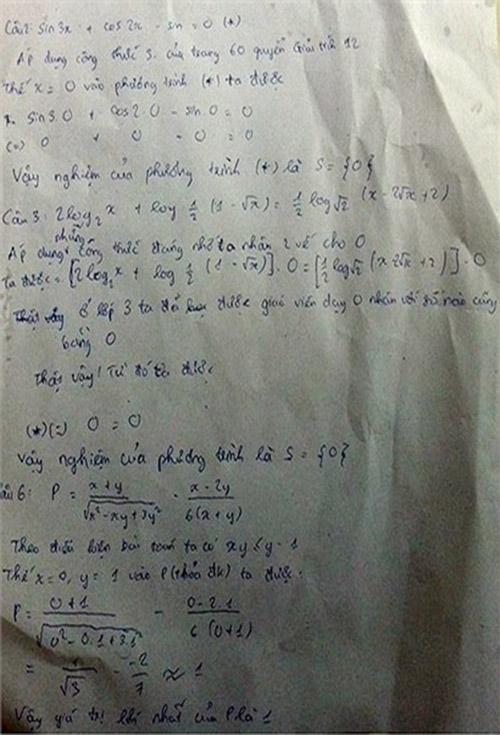 Câu 2: sin 3x + cos 2x - sin = 0 (*)
Áp dụng công thức 3. của trang 60 quyển Giải tích 12
Thế x = 0 vào phương trình (*) ta được
sin 3.0 + cos 2.0 - sin 0 = 0
(=) 0 + 0 - 0 = 0
Vậy nghiệm của phương trình (*) là S = {0}
Câu 3: 2log₂x + log ½ (1 - √x) = ½ log√2 (x - 2√x + 2)
Áp dụng những công thức đáng nhớ ta nhân 2 vế cho 0
Ta được: [2log₂x + log ½ (1 - √x)] . 0 = [½ log√2 (x - 2√x + 2)] . 0
Ở lớp 3 ta đã được giáo viên dạy 0 nhân với số nào cũng
bằng 0
Thật vậy! Từ đó ta được
(*) (=) 0 = 0
Vậy nghiệm của phương trình là S = {0}
Câu 6: P = x + y / √(x² - xy + 3y²) - x - 2y / 6(x + y)
Theo điều kiện bài toán ta có xy ≤ y - 1
Thế x = 0, y = 1 vào P (thỏa đk) ta được:
P = 0 + 1 / √(0² - 0.1 + 3.1) - 0 - 2.1 / 6 (0 + 1)
= 1 / √3 - -2 / 7 ≈ 1
Vậy giá trị lớn nhất của P là 1